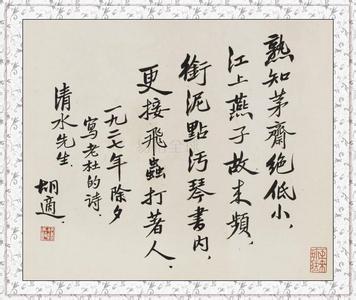 熟知茅齋絶低小，
江上燕子故來頻，
銜泥點污琴書內，
更接飛蟲打著人．
一九二七年除夕
寫老杜的詩．
清水先生．
胡適．